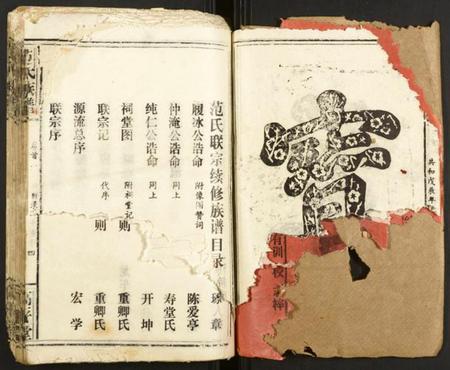 共和戊辰年
有训
梓
范氏联宗续修族谱目录
履冰公诰命 附像图赞词 陈爱亭
仲淹公诰命 同上 寿堂氏
纯仁公诰命 同上 开坤
祠堂图 附祠堂记 则 重卿氏
联宗记 代序 则 重卿氏
源流总序 宏学
联宗序
氏族
卷首
四
堂